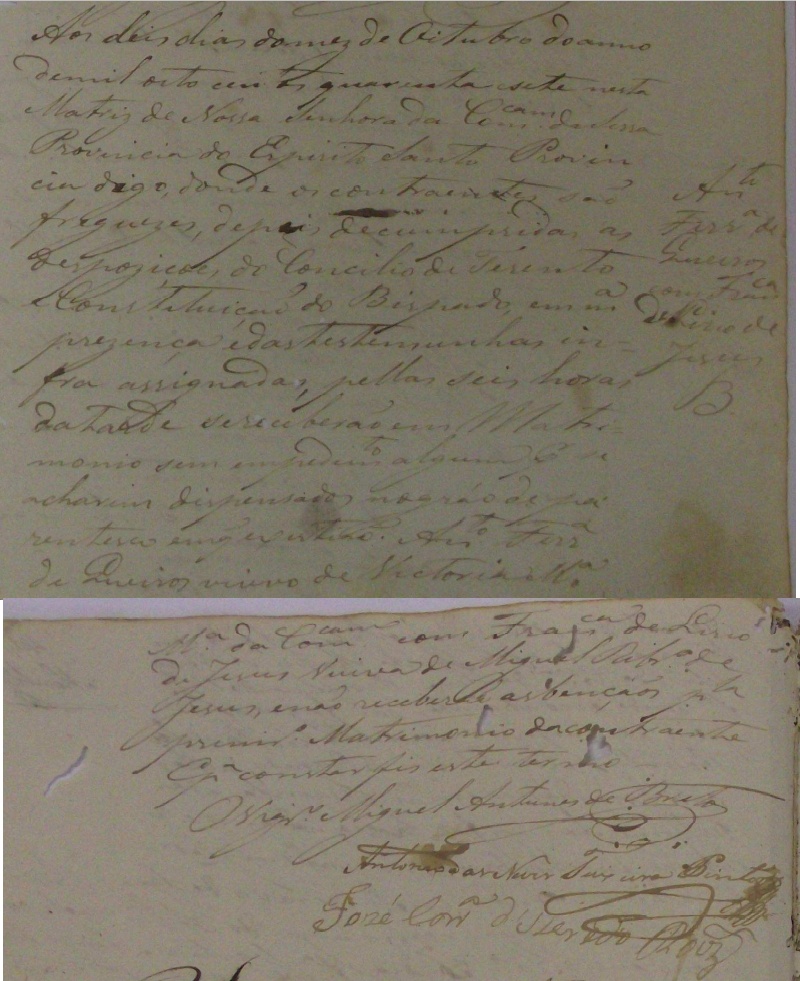 Aos deis dias do mez de Oitubro do anno
de mil oito centos quarenta e sete nesta
Matriz de Nossa Senhora da Comcam. desta
Provincia do Espirito Santo Provin
cia digo, donde os contraentes são
freguezes, depois de cumpridas as
despoziçoes do Concilio de Terento
e Constituiçaõ do Bispado, em mª
prezença e das testemunhas in-
fra assignadas, pellas seis horas
da tarde se receberaõ em Matri-
monio sem empedimto algum se
acharem dispensados no gráo de pa
rentesco Anto. Ferrª
de Queiros viuvo de Victoria Mª
Antº
Ferrª de
Queiros
com Franca
de Lirio de
Jesus
B.
Mª da Comcam com Franca de Lirio
de Jesus Viuva de Miguel Ribrº de
Jesus, e não receberaõ as bençãos pla
premrº Matrimonio da contraente
E pª constar fis este termo
O Vigrº Miguel Antunes de Brito
Antonio das Neves Teixeira Pinto
José Corrª d